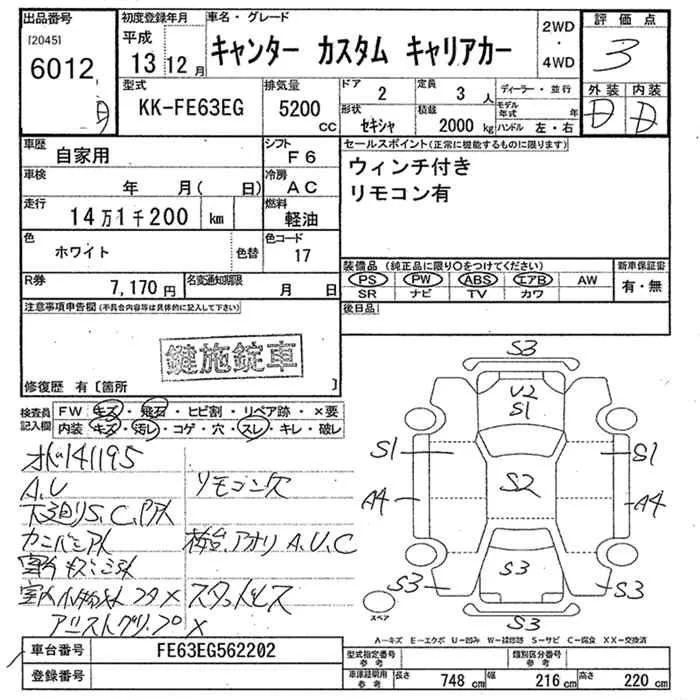 出品番号
[2045]
6012
初度登録年月
平成
13 12 月
車名・グレード
キャンター カスタム キャリアカー
2WD
・
4WD
評価点
3
外装 内装
D D
型式
KK-FE63EG
排気量
5200 CC
ドア
2
定員
3 人
形状
セキシャ
積載
2000 kg
ディーラー・並行
モデル年式 年
ハンドル 左・右
車歴
自家用
シフト
F6
車検
年 月( 日)
冷房
AC
走行
14万1千200 km
燃料
軽油
色
ホワイト
色替
色コード
17
R券
7,170円
名変通知期限
月 日
セールスポイント(正常に機能するものに限ります)
ウィンチ付き
リモコン有
装備品(純正品に限り○をつけてください)
PS PW ABS エアB AW
SR ナビ TV カワ
新車保証書
有・無
後日品
注意事項申告欄(不具合内容等は具体的に記入して下さい)
鍵施錠車
修復歴 有〔箇所 〕
検査員記入欄
FW キズ・飛石・ヒビ割・リペア跡・×要
内装 キズ・汚レ・コゲ・穴・スレ・キレ・破レ
141195
A.U リモコン欠
下廻りS.C.
A.U.C
S3
U2
S1
S1 S1
S2
A4 A4
S3
S3 S3
S3
スペア
A-キズ E-エクボ U-凹み W-補修跡 S-サビ C-腐食 XX-交換済
車台番号
FE63EG562202
登録番号
型式指定番号
参考
類別区分番号
参考
車庫証明用
参考
長さ 748 cm 幅 216 cm 高さ 220 cm